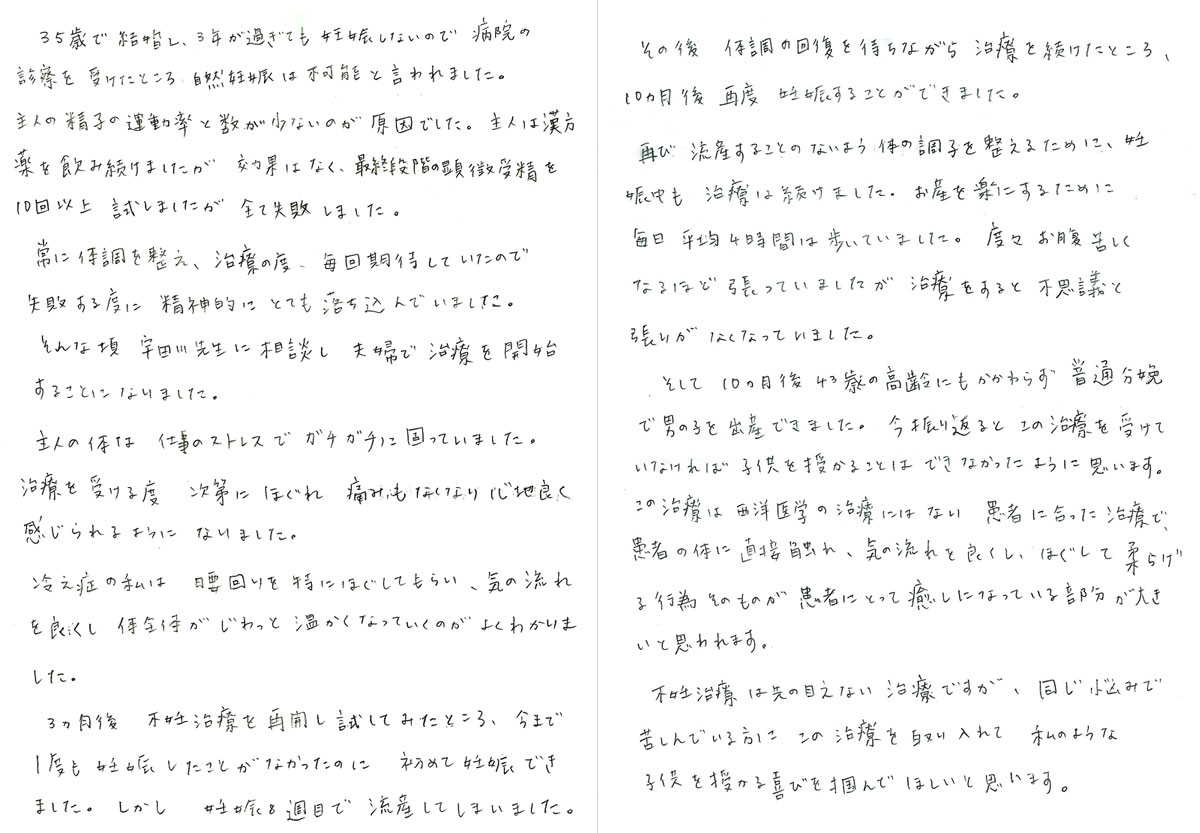 35歳で結婚し、3年が過ぎても妊娠しないので 病院の
診察を受けたところ 自然妊娠は不可能と言われました。
主人の精子の運動率と数が少ないのが原因でした。主人は漢方
薬を飲み続けましたが 効果はなく、最終段階の顕微受精を
10回以上 試しましたが 全て失敗しました。
常に体調を整え、治療の度、毎回期待していたので
失敗する度に 精神的にとても落ち込んでいました。
そんな頃 宇田川先生に相談し 夫婦で治療を開始
することになりました。
主人の体は 仕事のストレスでガチガチに固っていました。
治療を受ける度 次第にほぐれ 痛みもなくなり心地良く
感じられるように なりました。
冷え症の私は 腰回りを特にほぐしてもらい、気の流れ
を良くし 体全体がじわっと温かくなっていくのがよくわかりま
した。
3ヵ月後 不妊治療を再開し試してみたところ、今まで
1度も妊娠したことがなかったのに 初めて妊娠でき
ました。しかし 妊娠8週目で 流産してしまいました。
その後 体調の回復を待ちながら 治療を続けたところ、
10ヵ月後 再度 妊娠することができました。
再び 流産することのないよう体の調子を整えるために、妊
娠中も 治療は続けました。お産を楽にするために
毎日 平均4時間は歩いていました。度々お腹苦しく
なるほど張っていましたが 治療をすると 不思議と
張りがなくなっていました。
そして10ヵ月後43歳の高齢にもかかわらず 普通分娩
で男の子を出産できました。今振り返るとこの治療を受けて
いなければ 子供を授かることはできなかったように思います。
この治療は西洋医学の治療にはない 患者に合った治療で、
患者の体に直接触れ、気の流れを良くし、ほぐして柔らげ
る行為そのものが患者にとって癒しになっている部分が大き
いと思われます。
不妊治療は先の見えない治療ですが、同じ悩みで
苦しんでいる方に この治療を取り入れて 私のような
子供を授かる喜びを掴んでほしいと思います。